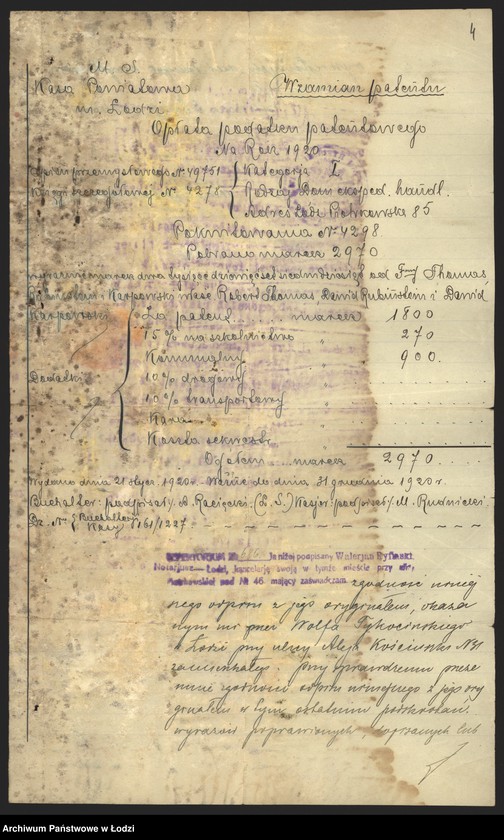 4
M. S.
Kasa Powiatowa
m. Łodzi
Wzamian patentu
Opłata podatku patentowego
Na Rok 1920
przemysłowego № 49751
Kategorja I
Księgi szczegółowej № 4278
Rodzaj Dom eksped. handl.
Adres Łódź Piotrkowska 85
Pokwitowanie № 4298
Pobrano marek 2970
marek dwa tysiące dziewięćset siedemdziesiąt od Firmy Thomas,
Rubinstein i Karpowski właśc. Robert Thomas, Dawid Rubinstein i Dawid
Karpowski
Za patent marek 1800
15% na szkolnictwo " 270
Komunalny " 900.
Dodatki
10% drogowy "
10% transportowy "
Kara "
Koszta "
Ogółem marek 2970
Wydano dnia 21 stycz. 1920 r. Ważne do dnia 31 grudnia 1920 r.
Buchalter: podpisał A. Racięcki. (L. S.) Kasjer: podpisał M. Rudnicki
Dz. № Buchalter
Kasy 161/1227
REPERTORJUM № Ja niżej podpisany Walerjan Ryfiński,
Notarjusz w Łodzi, kancelarję swoją w tymże mieście przy ulicy
Piotrkowskiej pod № 46 mający zaświadczam zgodność niniej
szego odpisu z jego oryginałem, okaza
nym mi przez Wolfa Tykocińskiego
w Łodzi przy ulicy Aleja Kościuszki № 31
zamieszkałego. przy sprawdzeniu przeze
mnie zgodności odpisu niniejszego z jego ory
ginałem w tym ostatnim poskrobań
wyrazów poprawionych dopisanych lub